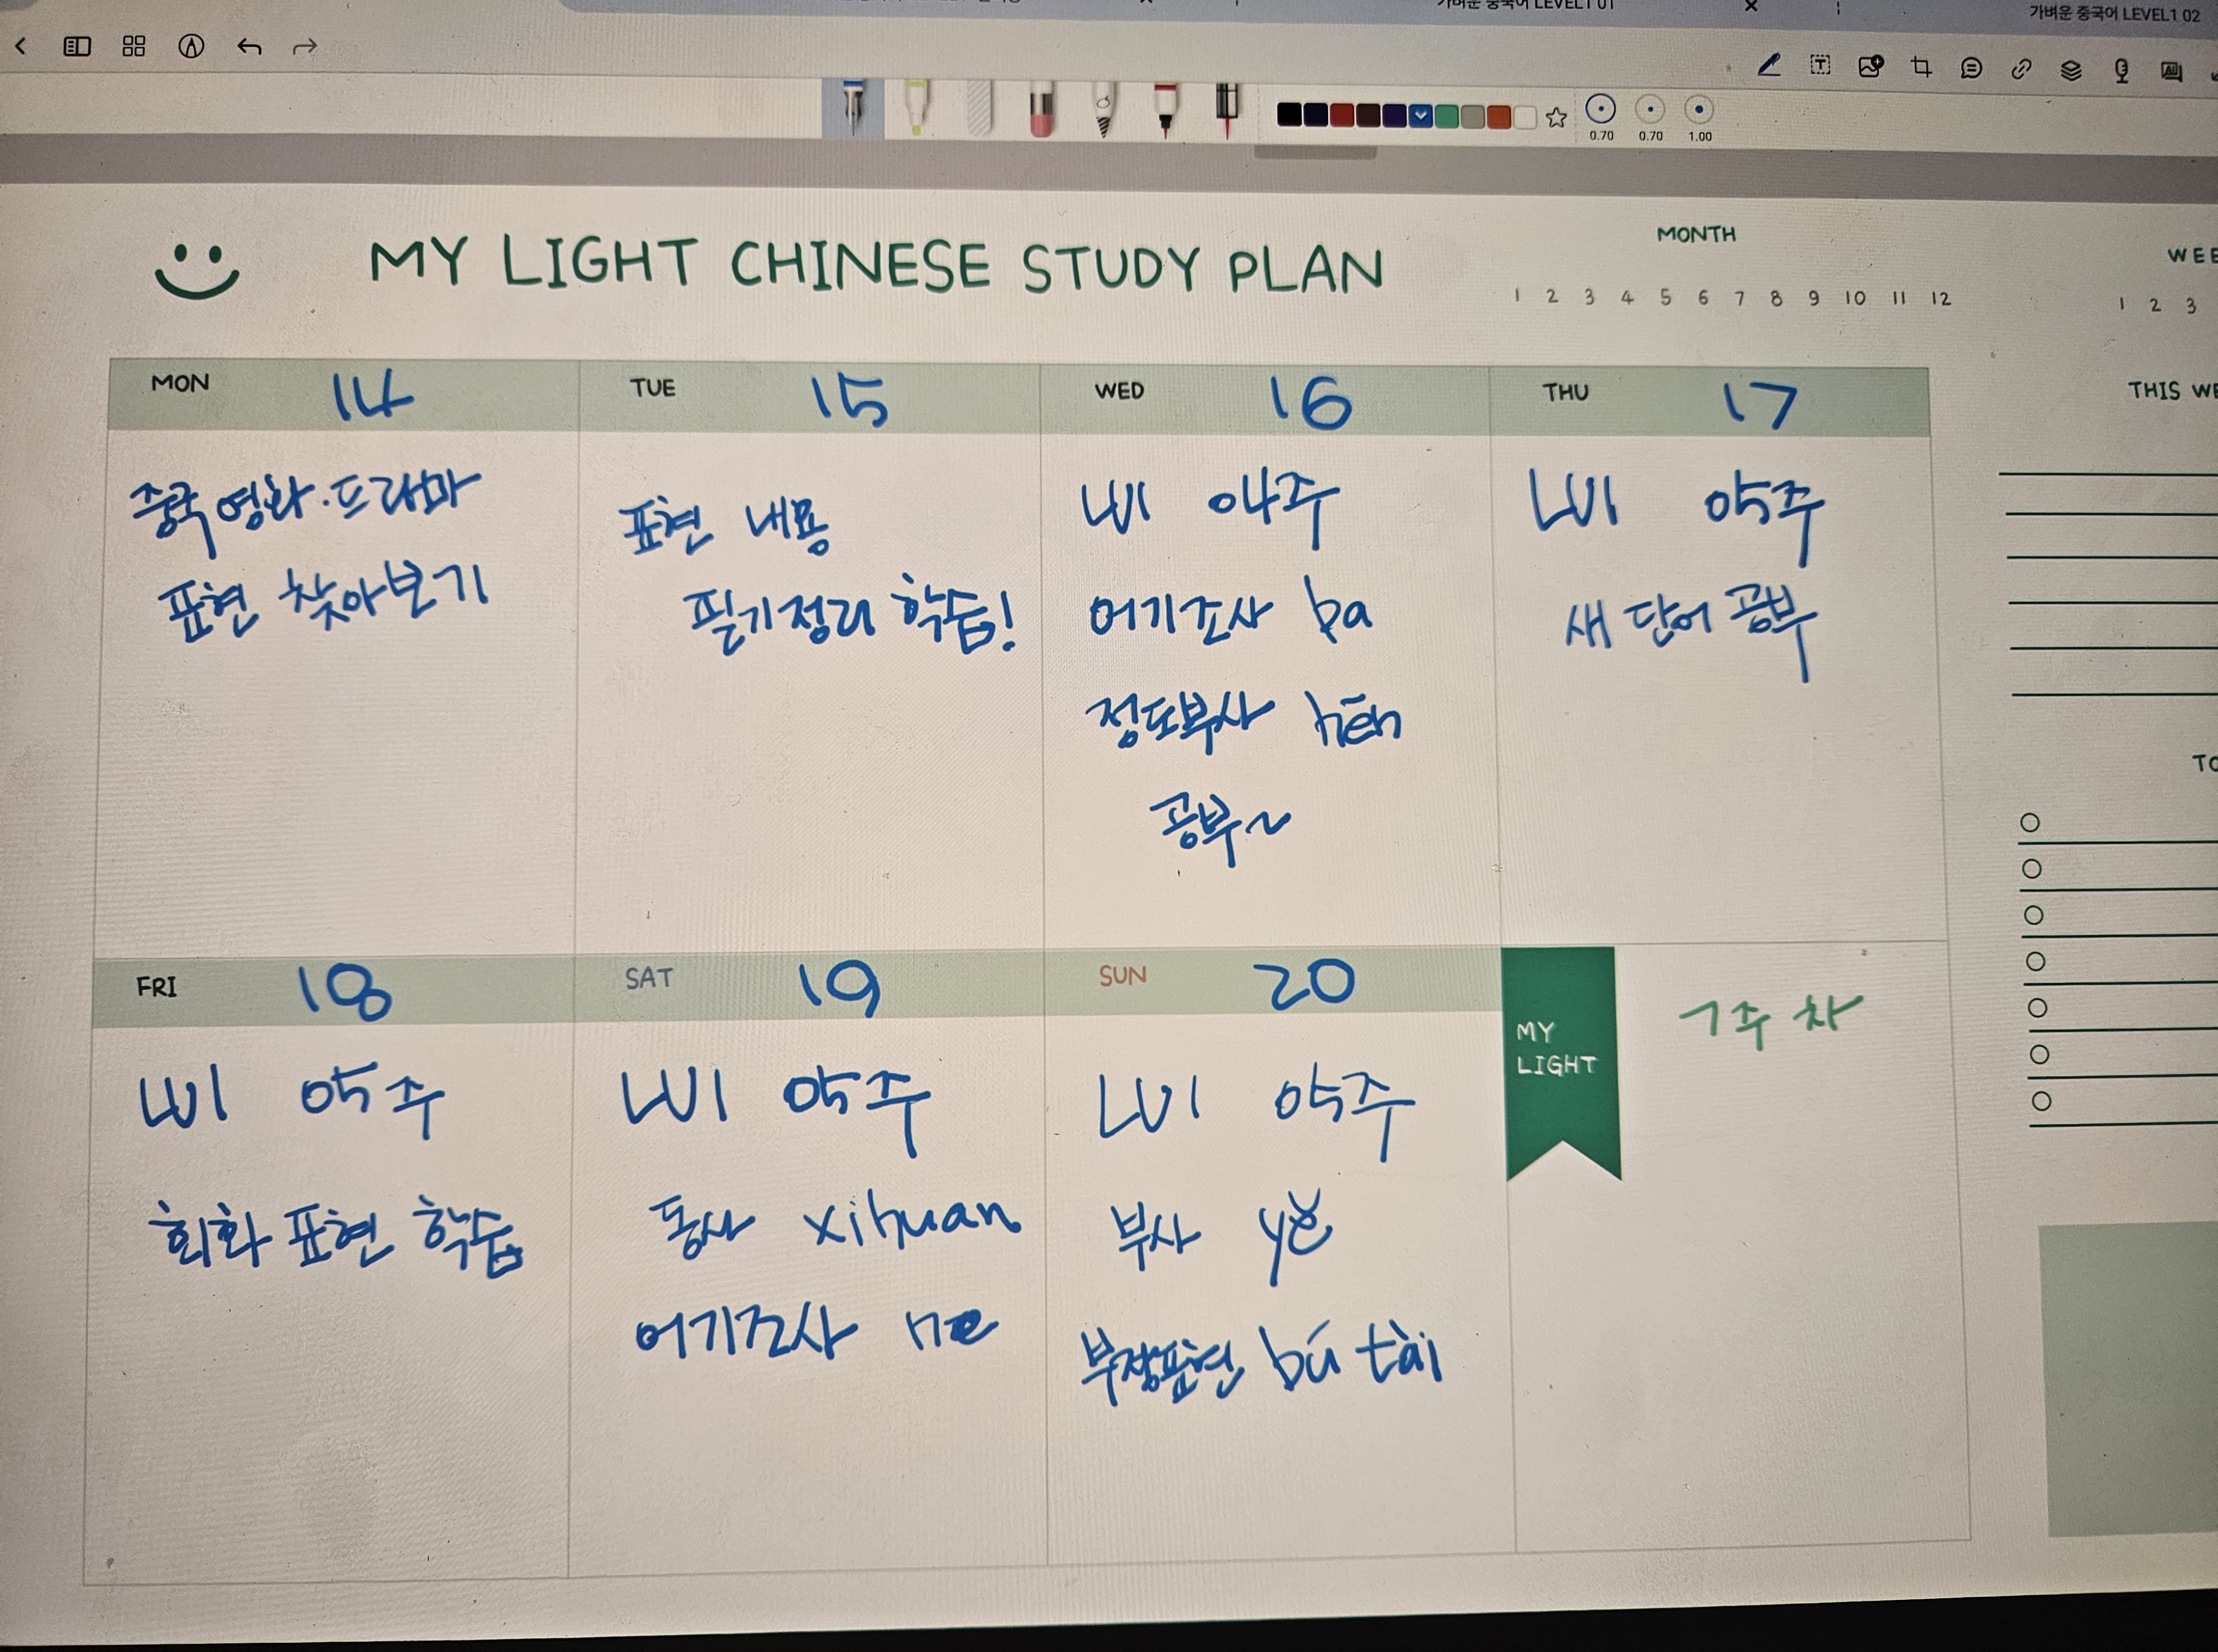 가벼운 중국어 LEVEL1 01
가벼운 중국어 LEVEL1 02
0.70 0.70 1.00
MY LIGHT CHINESE STUDY PLAN
MONTH
1 2 3 4 5 6 7 8 9 10 11 12
1 2 3
MON 14
중국 영화·드라마
표현 찾아보기
TUE 15
표현 내용
필기정리 학습!
WED 16
LV1 04주
어기조사 ba
정도부사 hēn
공부~
THU 17
LV1 05주
새 단어 공부
THIS WE
TO
FRI 18
LV1 05주
회화 표현 학습
SAT 19
LV1 05주
동사 xihuan
어기조사 ne
SUN 20
LV1 05주
부사 yě
부정표현 bú tài
MY
LIGHT
7주차